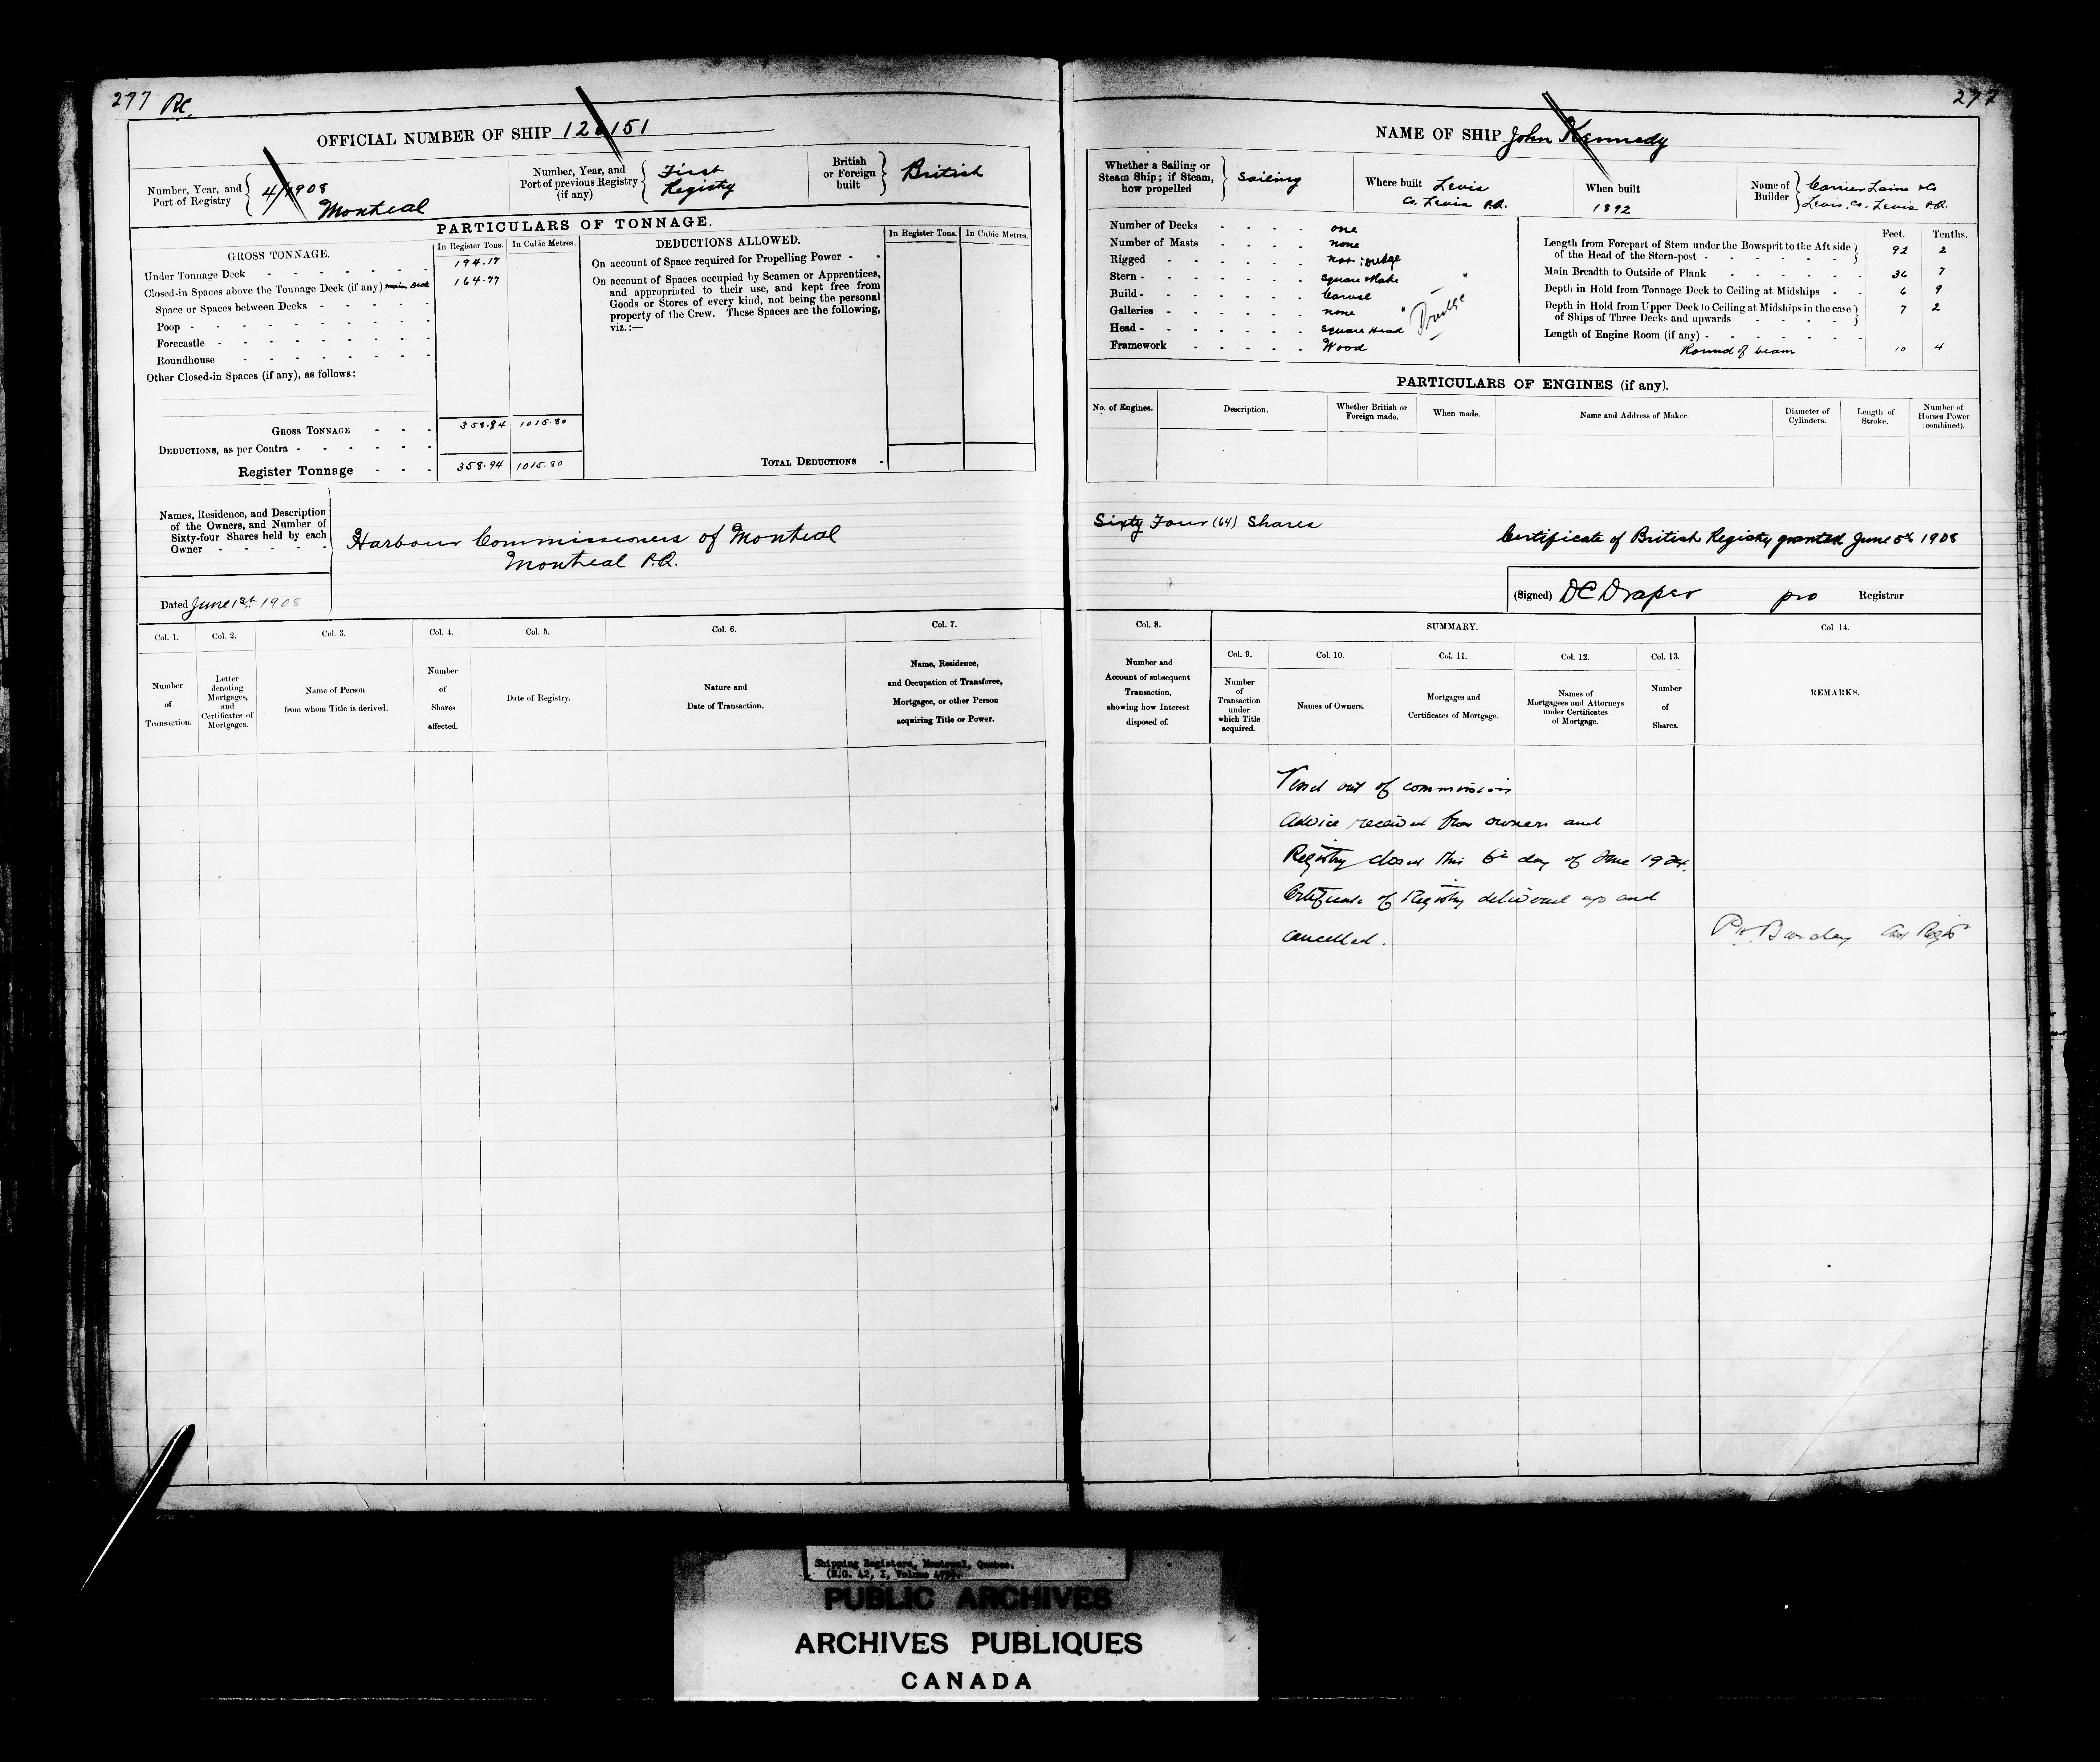 277 RC.
OFFICIAL NUMBER OF SHIP 126151
Number, Year, and Port of Registry 4/1908 Montreal
Number, Year, and Port of previous Registry (if any) First Registry
British or Foreign built British
PARTICULARS OF TONNAGE.
GROSS TONNAGE. In Register Tons. In Cubic Metres.
Under Tonnage Deck 194.17
Closed-in Spaces above the Tonnage Deck (if any) main deck 164.77
Space or Spaces between Decks
Poop
Forecastle
Roundhouse
Other Closed-in Spaces (if any), as follows:
GROSS TONNAGE 358.94 1015.80
DEDUCTIONS, as per Contra
Register Tonnage 358.94 1015.80
DEDUCTIONS ALLOWED. In Register Tons. In Cubic Metres.
On account of Space required for Propelling Power
On account of Spaces occupied by Seamen or Apprentices,
and appropriated to their use, and kept free from
Goods or Stores of every kind, not being the personal
property of the Crew. These Spaces are the following,
viz.:—
TOTAL DEDUCTIONS
Names, Residence, and Description
of the Owners, and Number of
Sixty-four Shares held by each
Owner
Harbour Commissioners of Montreal
Montreal P.Q.
Dated June 1st 1908
Col. 1. Col. 2. Col. 3. Col. 4. Col. 5. Col. 6. Col. 7.
Number of Transaction.
Letter denoting Mortgages, and Certificates of Mortgages.
Name of Person from whom Title is derived.
Number of Shares affected.
Date of Registry.
Nature and Date of Transaction.
Name, Residence, and Occupation of Transferee, Mortgagee, or other Person acquiring Title or Power.
277
NAME OF SHIP John Kennedy
Whether a Sailing or Steam Ship; if Steam, how propelled Sailing
Where built Levis Co. Levis P.Q.
When built 1892
Name of Builder Carrier Laine & Co Levis Co. Levis P.Q.
Number of Decks one
Number of Masts none
Rigged not:
Stern square
Build Carvel
Galleries none
Head square Head
Framework Wood
Dredge
Feet. Tenths.
Length from Forepart of Stem under the Bowsprit to the Aft side of the Head of the Stern-post 92 2
Main Breadth to Outside of Plank 36 7
Depth in Hold from Tonnage Deck to Ceiling at Midships 6 9
Depth in Hold from Upper Deck to Ceiling at Midships in the case of Ships of Three Decks and upwards 7 2
Length of Engine Room (if any)
Round of beam 10 4
PARTICULARS OF ENGINES (if any).
No. of Engines. Description. Whether British or Foreign made. When made. Name and Address of Maker. Diameter of Cylinders. Length of Stroke. Number of Horses Power (combined).
Sixty Four (64) Shares
Certificate of British Registry granted June 5th 1908
(Signed) DC Draper pro Registrar
Col. 8. SUMMARY. Col 14.
Col. 9. Col. 10. Col. 11. Col. 12. Col. 13.
Number and Account of subsequent Transaction, showing how Interest disposed of.
Number of Transaction under which Title acquired.
Names of Owners.
Mortgages and Certificates of Mortgage.
Names of Mortgagees and Attorneys under Certificates of Mortgage.
Number of Shares.
REMARKS.
Vessel out of commission
Advice received from owners and
Registry closed this 6th day of June 1924.
Certificate of Registry delivered up and
cancelled.
Shipping Registers, Montreal, Quebec.
(R.G. 42, I, Volume
PUBLIC ARCHIVES
ARCHIVES PUBLIQUES
CANADA